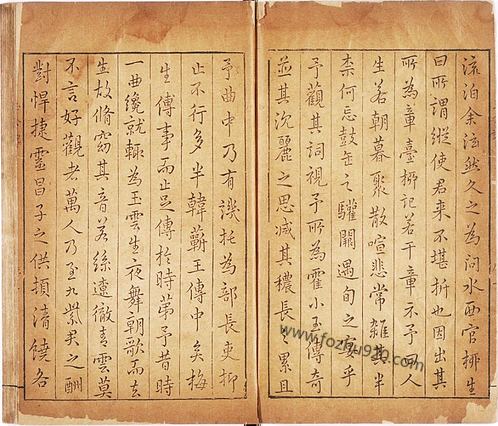 流泊余泫然久之為問水西官栁生
曰所謂縱使君來不堪折也因出其
所為章臺栁記若干章示予曰人
生若朝暮聚散喧悲常雜其半
柰何忘鼓缶之驩闕遇旬之宴乎
予觀其詞視予所為霍小玉傳奇
並其沉麗之思减其穠長之累且
予曲中乃有譏托為部長吏抑
止不行多半韓蘄王傳中矣梅
生傳事而止足傳於時第予昔時
一曲纔就輒為玉雲生夜舞朝歌而去
生故脩窈其音若絲遼徹青雲莫
不言好觀者萬人乃至九紫君之酬
對悍捷靈昌子之供頓清饒各
www.fozhu920.com